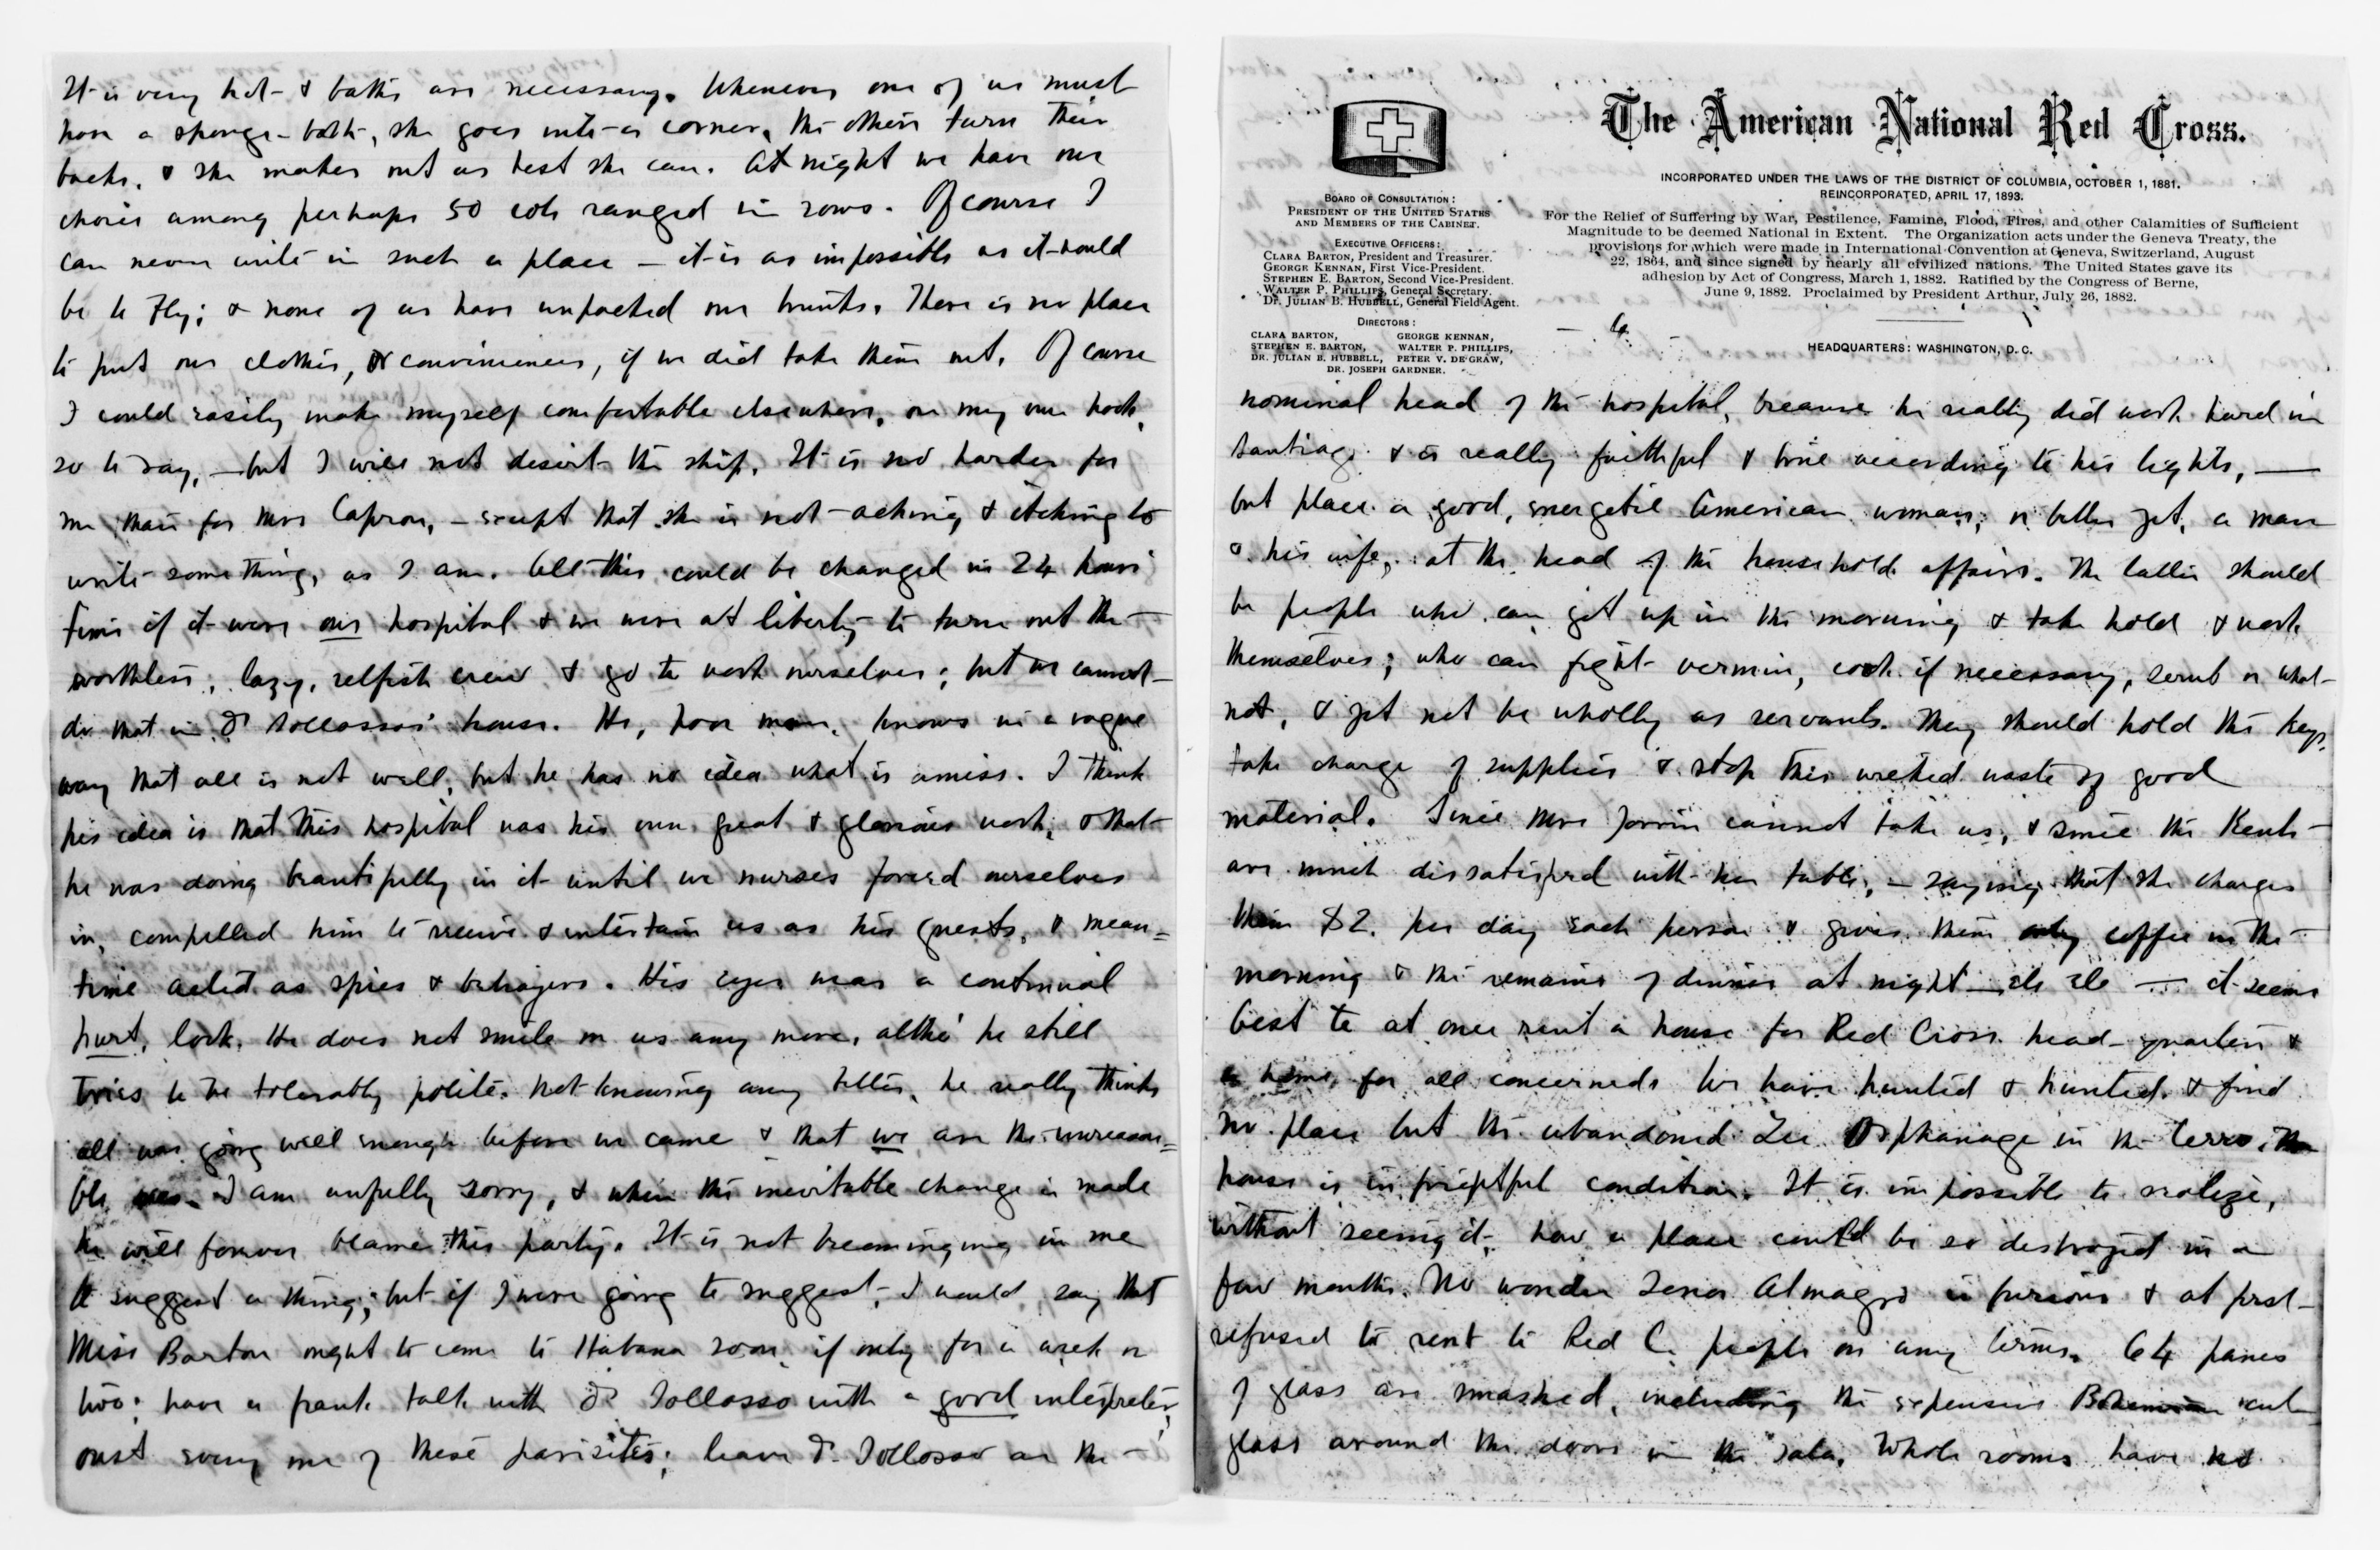 It is very hot - & baths are necessary. Whenever one of us must
have a sponge-bath, she goes into a corner, the others turn their
backs, & she makes out as best she can. At night we have our
choice among perhaps 50 cots ranged in rows. Of course I
can never write in such a place — it is as impossible as it would
be to fly; & none of us have unpacked our trunks. There is no place
to put our clothes, or conveniences, if we did take them out. Of course
I could easily make myself comfortable elsewhere, on my own hook,
so to say, — but I will not desert the ship. It is no harder for
me than for Mrs Capron, — except that she is not aching & itching to
write something, as I am. All this could be changed in 24 hours
time if it were our hospital & we were at liberty to turn out the
worthless, lazy, selfish crew & go to work ourselves; but we cannot
do that in Dr Sollosso's house. He, poor man, knows in a vague
way that all is not well, but he has no idea what is amiss. I think
his idea is that this hospital was his own great & glorious work, & that
he was doing beautifully in it until we nurses forced ourselves
in, compelled him to receive & entertain us as his guests, & mean=
time acted as spies & betrayers. His eyes wear a continual
hurt look. He does not smile on us any more, altho' he still
tries to be tolerably polite. Not knowing any better, he really thinks
all was going well enough before we came & that we are the unreasona=
ble I am awfully sorry, & when the inevitable change is made
he will forever blame this party. It is not becominging in me
to suggest a thing; but if I were going to suggest, I would say that
Miss Barton ought to come to Habana soon, if only for a week or
two; have a frank talk with Dr Sollosso with a good interpreter,
oust every one of these parisites; leave Dr Sollosso as the
The American National Red Cross.
INCORPORATED UNDER THE LAWS OF THE DISTRICT OF COLUMBIA, OCTOBER 1, 1881.
REINCORPORATED, APRIL 17, 1893.
For the Relief of Suffering by War, Pestilence, Famine, Flood, Fires, and other Calamities of Sufficient
Magnitude to be deemed National in Extent. The Organization acts under the Geneva Treaty, the
provisions for which were made in International Convention at Geneva, Switzerland, August
22, 1864, and since signed by nearly all civilized nations. The United States gave its
adhesion by Act of Congress, March 1, 1882. Ratified by the Congress of Berne,
June 9, 1882. Proclaimed by President Arthur, July 26, 1882.
HEADQUARTERS: WASHINGTON, D. C.
BOARD OF CONSULTATION:
PRESIDENT OF THE UNITED STATES
AND MEMBERS OF THE CABINET.
EXECUTIVE OFFICERS:
CLARA BARTON, President and Treasurer.
GEORGE KENNAN, First Vice-President.
STEPHEN E. BARTON, Second Vice-President.
WALTER P. PHILLIPS, General Secretary.
DR. JULIAN B. HUBBELL, General Field Agent.
DIRECTORS:
CLARA BARTON, GEORGE KENNAN,
STEPHEN E. BARTON, WALTER P. PHILLIPS,
DR. JULIAN B. HUBBELL, PETER V. DE GRAW,
DR. JOSEPH GARDNER.
nominal head of the hospital, because he really did work hard in
Santiago & is really faithful & true according to his lights, —
but place a good, energetic American woman, or better yet, a man
& his wife, at the head of the household affairs. The latter should
be people who can get up in the morning & take hold & work
themselves; who can fight vermin, cook if necessary, scrub or what-
not, & yet not be wholly as servants. They should hold the keys,
take charge of supplies & stop this wicked waste of good
material. Since Mrs Jorrin cannot take us, & since the Kents
are much dissatisfied with her table, — saying that she charges
them $2. per day each person & gives them only coffee in the
morning & the remains of dinner at night — etc etc — it seems
best to at once rent a house for Red Cross head-quarters &
a home for all concerned. We have hunted & hunted & find
no place but the abandoned Lee Orphanage in the Cerro. The
house is in frightful condition. It is impossible to realize,
without seeing it, how a place could be so destroyed in a
few months. No wonder Senor Almagro is furious & at first
refused to rent to Red C. people on any terms. 64 panes
of glass are smashed, including the expensive Bohemian cut
glass around the doors in the sala. Whole rooms have no